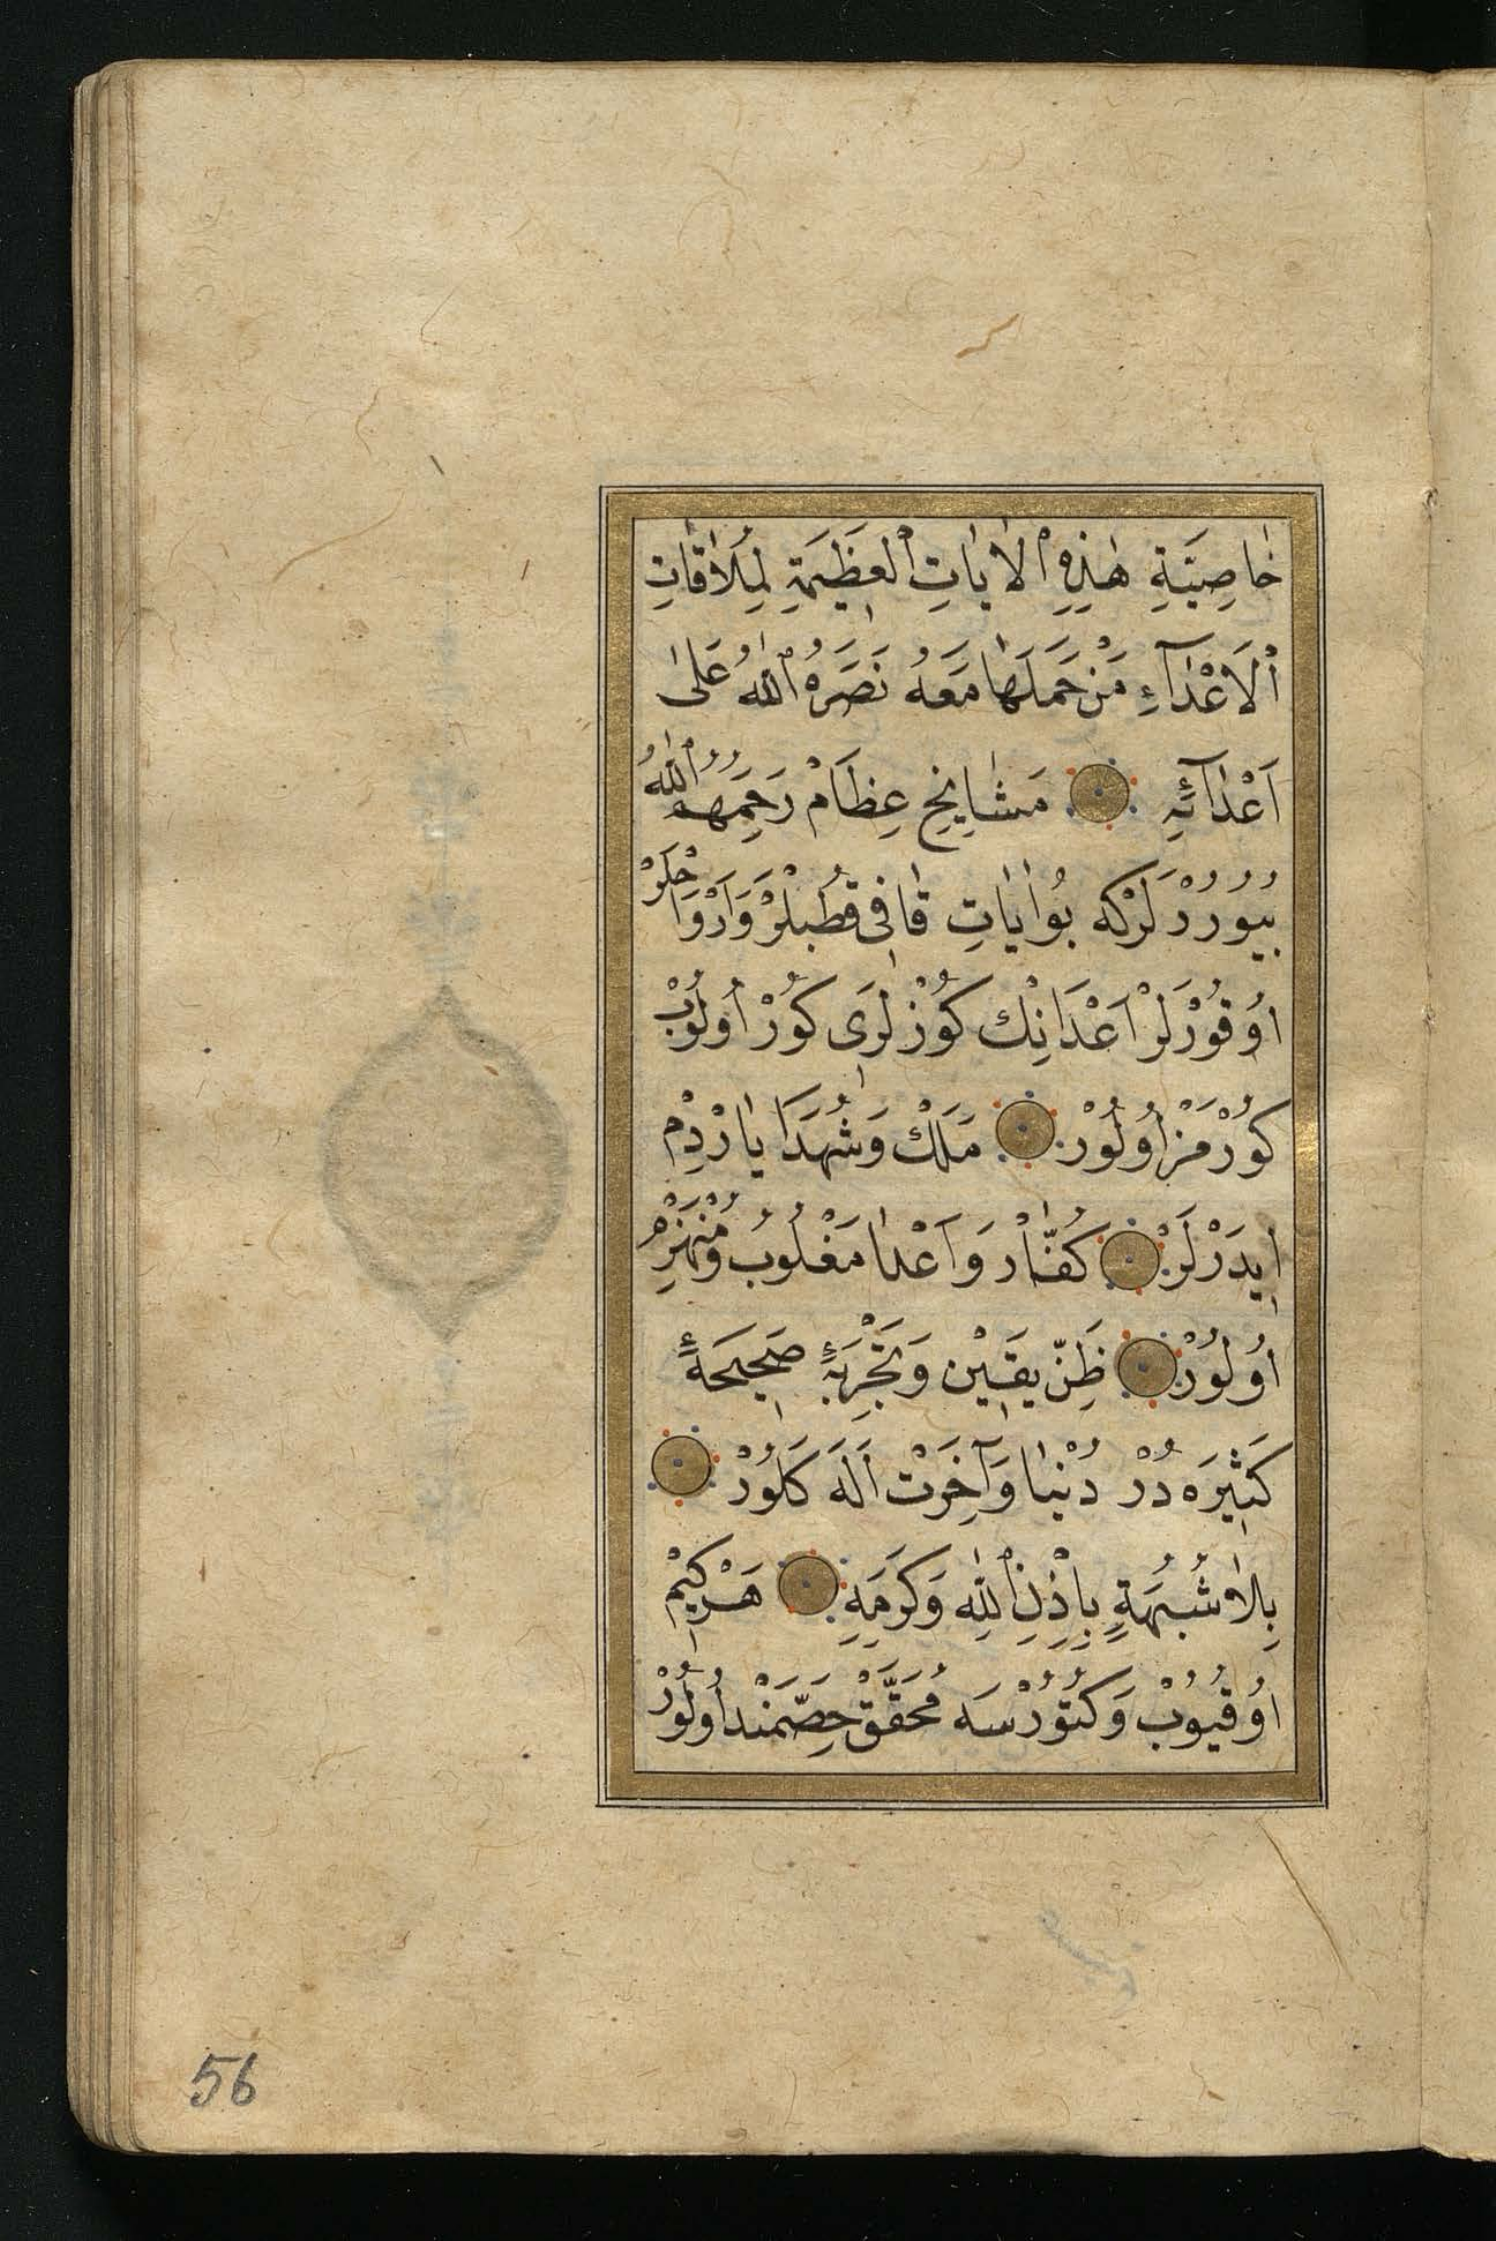 خَاصِيَّةِ هٰذِهِ ٱلْاٰيَاتِ ٱلْعَظِيمَةِ لِمُلَاقَاتِ
ٱلْاَعْدَآءِ مَنْ حَمَلَهَا مَعَهُ نَصَرَهُ ٱللّٰهُ عَلٰى
اَعْدَآئِهِ مَشَايِخِ عِظَامْ رَحِمَهُمُ ٱللّٰهُ
بُيُورُدْلَرْكِه بُواٰيَاتِ قَافِى قُطْبلَرْ وَاَرْوَاحْلَرْ
اوُقُورْلَرْ اَعْدَانِكْ كُوزْلَرِى كُورْ اُولُوبْ
كُورْمَزْ اُولُورْ مَلَكْ وَشُهَدَا يَارْدِمْ
اِيدَرْلَرْ كُفَّارْ وَاَعْدَا مَغْلُوبُ وَمُنْهَزِمْ
اوُلُورْ ظَنِّ يَقِيْن وَتَجْرِبَهٴِ صَحِيحَهٴِ
كَثِيرَه دُرْ دُنْيَا وَآخِرَتْ اَلَه كَلُورْ
بِلَا شُبْهَةٍ بِاِذْنِ ٱللّٰهِ وَكَرَمِهِ هَرْكِيمْ
اوُقُيُوبْ وَكُتُورْسَه مُحَقَّقْ حِصَّمَنْد اُولُورْ
56